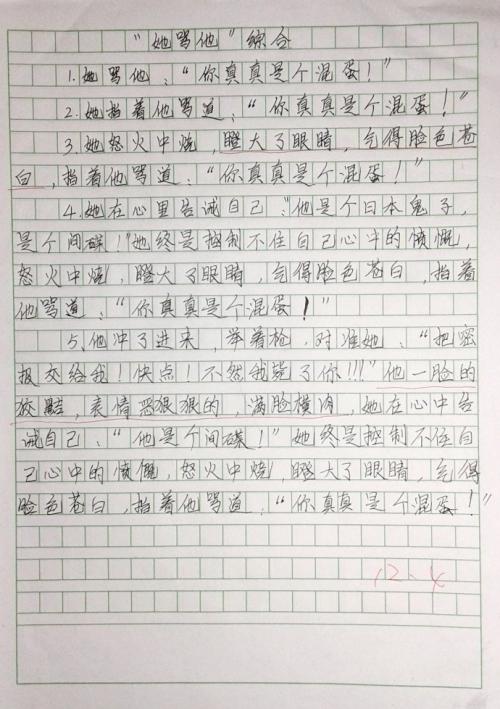 “她骂他”综合
1.她骂他：“你真真是个混蛋！”
2.她指着他骂道：“你真真是个混蛋！”
3.她怒火中烧，瞪大了眼睛，气得脸色苍
白，指着他骂道：“你真真是个混蛋！”
4.她在心里告诫自己：“他是个日本鬼子，
是个间碟！”她终是控制不住自己心中的愤慨，
怒火中烧，瞪大了眼睛，气得脸色苍白，指着
他骂道：“你真真是个混蛋！”
5.他冲了进来，举着枪，对准她：“把密
报交给我！快点！不然我毙了你!!!”他一脸的
狡黠，表情恶狠狠的，满脸横肉，她在心中告
诫自己：“他是个间碟！”她终是控制不住自
己心中的愤慨，怒火中烧，瞪大了眼睛，气得
脸色苍白，指着他骂道：“你真真是个混蛋！”
12.4